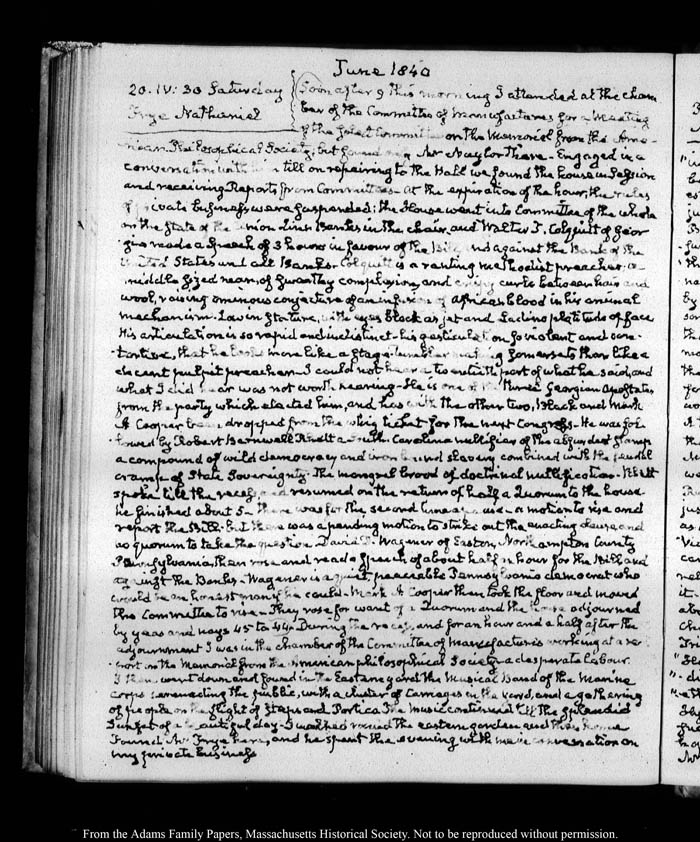 June 1840
20. IV: 30 Saturday
Frye Nathaniel
Soon after 9 this morning I attended at the cham
ber of the Committee of Manufactures for a Meeting
of the Joint Committee on the Memorial from the Ame-
rican Philosophical Society; but found only Mr Naylor there - Engaged in a
conversation with him till on repairing to the Hall we found the house in Session
and receiving Reports from Committees - At the expiration of the hour, the rules
of private business were suspended; the House went into Committee of the whole
on the State of the Union Linn Banks in the chair, and Walter T. Colquitt of Geor
gia made a Speech of 3 hours in favour of the Bill and against the Bank of the
United States and all Banks. Colquitt is a ranting methodist preacher; a
middle sized man, of swarthy complexion, and crispy curls between hair and
wool, raising ominous conjecture of an infusion of African blood in his animal
mechanism. Low in stature, with eyes black as jet and platitude of face
His articulation is so rapid and indistinct - his gesticulation so violent and con-
tortive, that he looks more like a Stage-tumbler making Somersets than like a
decent pulpit preacher - I could not hear a part of what he said, and
what I did hear was not worth hearing - He is one of the three Georgian Apostates
from the party which elected him, and has with the other two, Black and Mark
A Cooper been dropped from the whig ticket for the next Congress - He was fol-
lowed by Robert Barnwell Rhett a South Carolina nullifier of the absurdest stamp
a compound of wild democracy and iron bound slavery combined with the feudal
cramp of State Sovereignty - The mongrel brood of doctrinal nullification - Rhett
spoke till the recess and resumed on the return of half a Quorum to the house.
he finished about 5 - there was for the second time a motion to rise and
report the Bill; but there was a pending motion to strike out the enacting clause, and
no quorum to take the question. David D. Wagener of Easton, Northampton County
Pennsylvania, then rose and read a Speech of about half an hour for the Bill and
against the Banks - Wagener is a quiet peaceable Pennsylvania democrat who
would be an honest man if he could - Mark A Cooper then took the floor and moved
the Committee to rise - They rose for want of a Quorum and the House adjourned
by yeas and nays 45 to 44. During the recess, and for an hour and a half after the
adjournment I was in the chamber of the Committee of Manufactures working at a re-
port on the Memorial from the American philosophical Society a desperate labour.
I then went down and found in the Eastern yard the Musical Band of the Marine
Corps serenading the public, with a cluster of Carriages in the yard, and a gathering
of people on the flight of Steps and Portico. The music continued till the splendid
Sunset of a beautiful day - I walked round the eastern garden and then home
Found Mr Frye here, and he spent the evening with me in conversation on
my private business
From the Adams Family Papers, Massachusetts Historical Society. Not to be reproduced without permission.